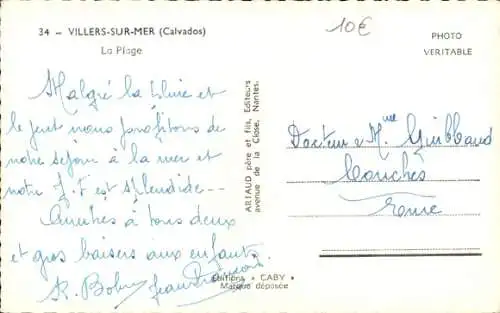 34 - VILLERS-SUR-MER (Calvados)
La Plage
10€
PHOTO
VERITABLE
Malgré la pluie et
le vent nous profitons de
notre séjour à la mer et
notre J.F est splendide --
Amitiés à tous deux
et gros baisers aux enfants
ARTAUD père et fils, Editeurs
avenue de la Close, Nantes.
Docteur & Mme Guibbaud
Conches
Eure
Editions • GABY •
Marque déposée